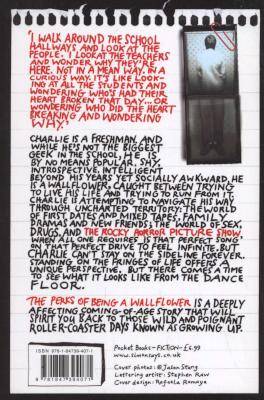 'I WALK AROUND THE SCHOOL
HALLWAYS AND LOOK AT THE
PEOPLE. I LOOK AT THE TEACHERS
AND WONDER WHY THEY'RE
HERE. NOT IN A MEAN WAY. IN A
CURIOUS WAY. IT'S LIKE LOOK-
ING AT ALL THE STUDENTS AND
WONDERING WHO'S HAD THEIR
HEART BROKEN THAT DAY... OR
WONDERING WHO DID THE HEART
BREAKING AND WONDERING
WHY.'
CHARLIE IS A FRESHMAN. AND
WHILE HE'S NOT THE BIGGEST
GEEK IN THE SCHOOL, HE IS
BY NO MEANS POPULAR. SHY,
INTROSPECTIVE, INTELLIGENT
BEYOND HIS YEARS YET SOCIALLY AWKWARD, HE IS
A WALLFLOWER, CAUGHT BETWEEN TRYING
TO LIVE HIS LIFE AND TRYING TO RUN FROM IT.
CHARLIE IS ATTEMPTING TO NAVIGATE HIS WAY
THROUGH UNCHARTED TERRITORY: THE WORLD
OF FIRST DATES AND MIXED TAPES, FAMILY
DRAMAS AND NEW FRIENDS; THE WORLD OF SEX,
DRUGS, AND THE ROCKY HORROR PICTURE SHOW,
WHEN ALL ONE REQUIRES IS THAT PERFECT SONG
ON THAT PERFECT DRIVE TO FEEL INFINITE. BUT
CHARLIE CAN'T STAY ON THE SIDELINE FOREVER.
STANDING ON THE FRINGES OF LIFE OFFERS A
UNIQUE PERSPECTIVE. BUT THERE COMES A TIME
TO SEE WHAT IT LOOKS LIKE FROM THE DANCE
FLOOR.
THE PERKS OF BEING A WALLFLOWER IS A DEEPLY
AFFECTING COMING-OF-AGE STORY THAT WILL
SPIRIT YOU BACK TO THOSE WILD AND POIGNANT
ROLLER-COASTER DAYS KNOWN AS GROWING UP.
Pocket Books -FICTION- £6.99
www.simonsays.co.uk
Cover photos: © Jason Stang
Lettering artist: Stephen Raw
Cover design: Rafaela Romaya
ISBN 978-1-84739-407-1
9 781847 394071